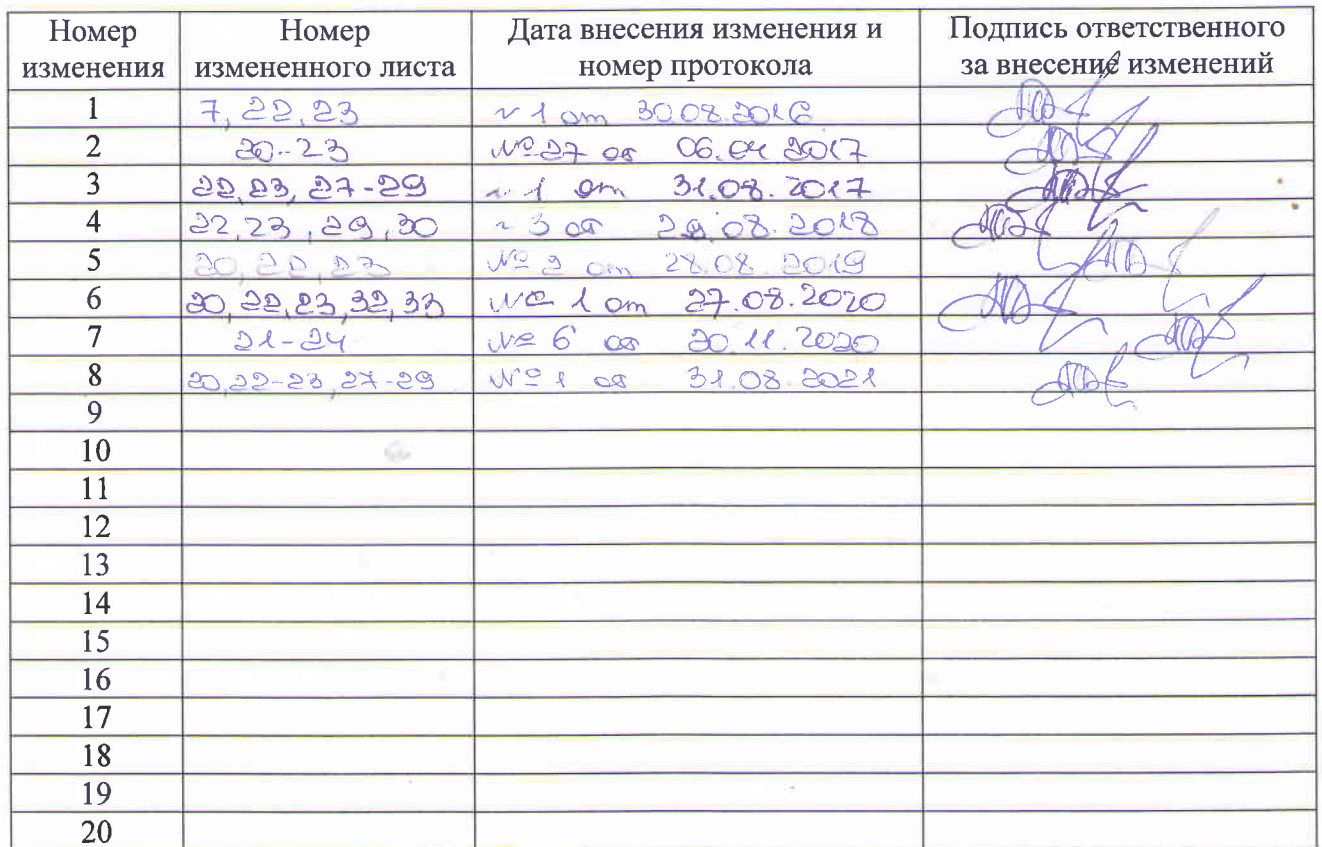 Номер изменения | Номер измененного листа | Дата внесения изменения и номер протокола | Подпись ответственного за внесение изменений
1 | 7, 22, 23 | № 1 от 30.08.2016
2 | 20-23 | №27 от 06.04 2017
3 | 22, 23, 27-29 | № 1 от 31.08.2017
4 | 22, 23, 29, 30 | № 3 от 29.08.2018
5 | 20, 22, 23 | № 2 от 28.08.2019
6 | 20, 22, 23, 32, 33 | № 1 от 27.08.2020
7 | 21-24 | № 6 от 20.11.2020
8 | 20, 22-23, 27-29 | № 1 от 31.08.2021
9
10
11
12
13
14
15
16
17
18
19
20